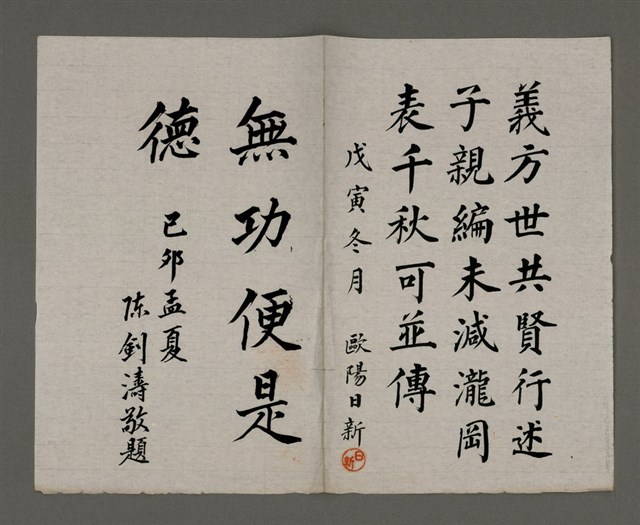 義方世共賢行述
子親編未減瀧岡
表千秋可並傳
戊寅冬月 歐陽日新
日新
無功便是
德
己卯孟夏
陈劍濤敬題